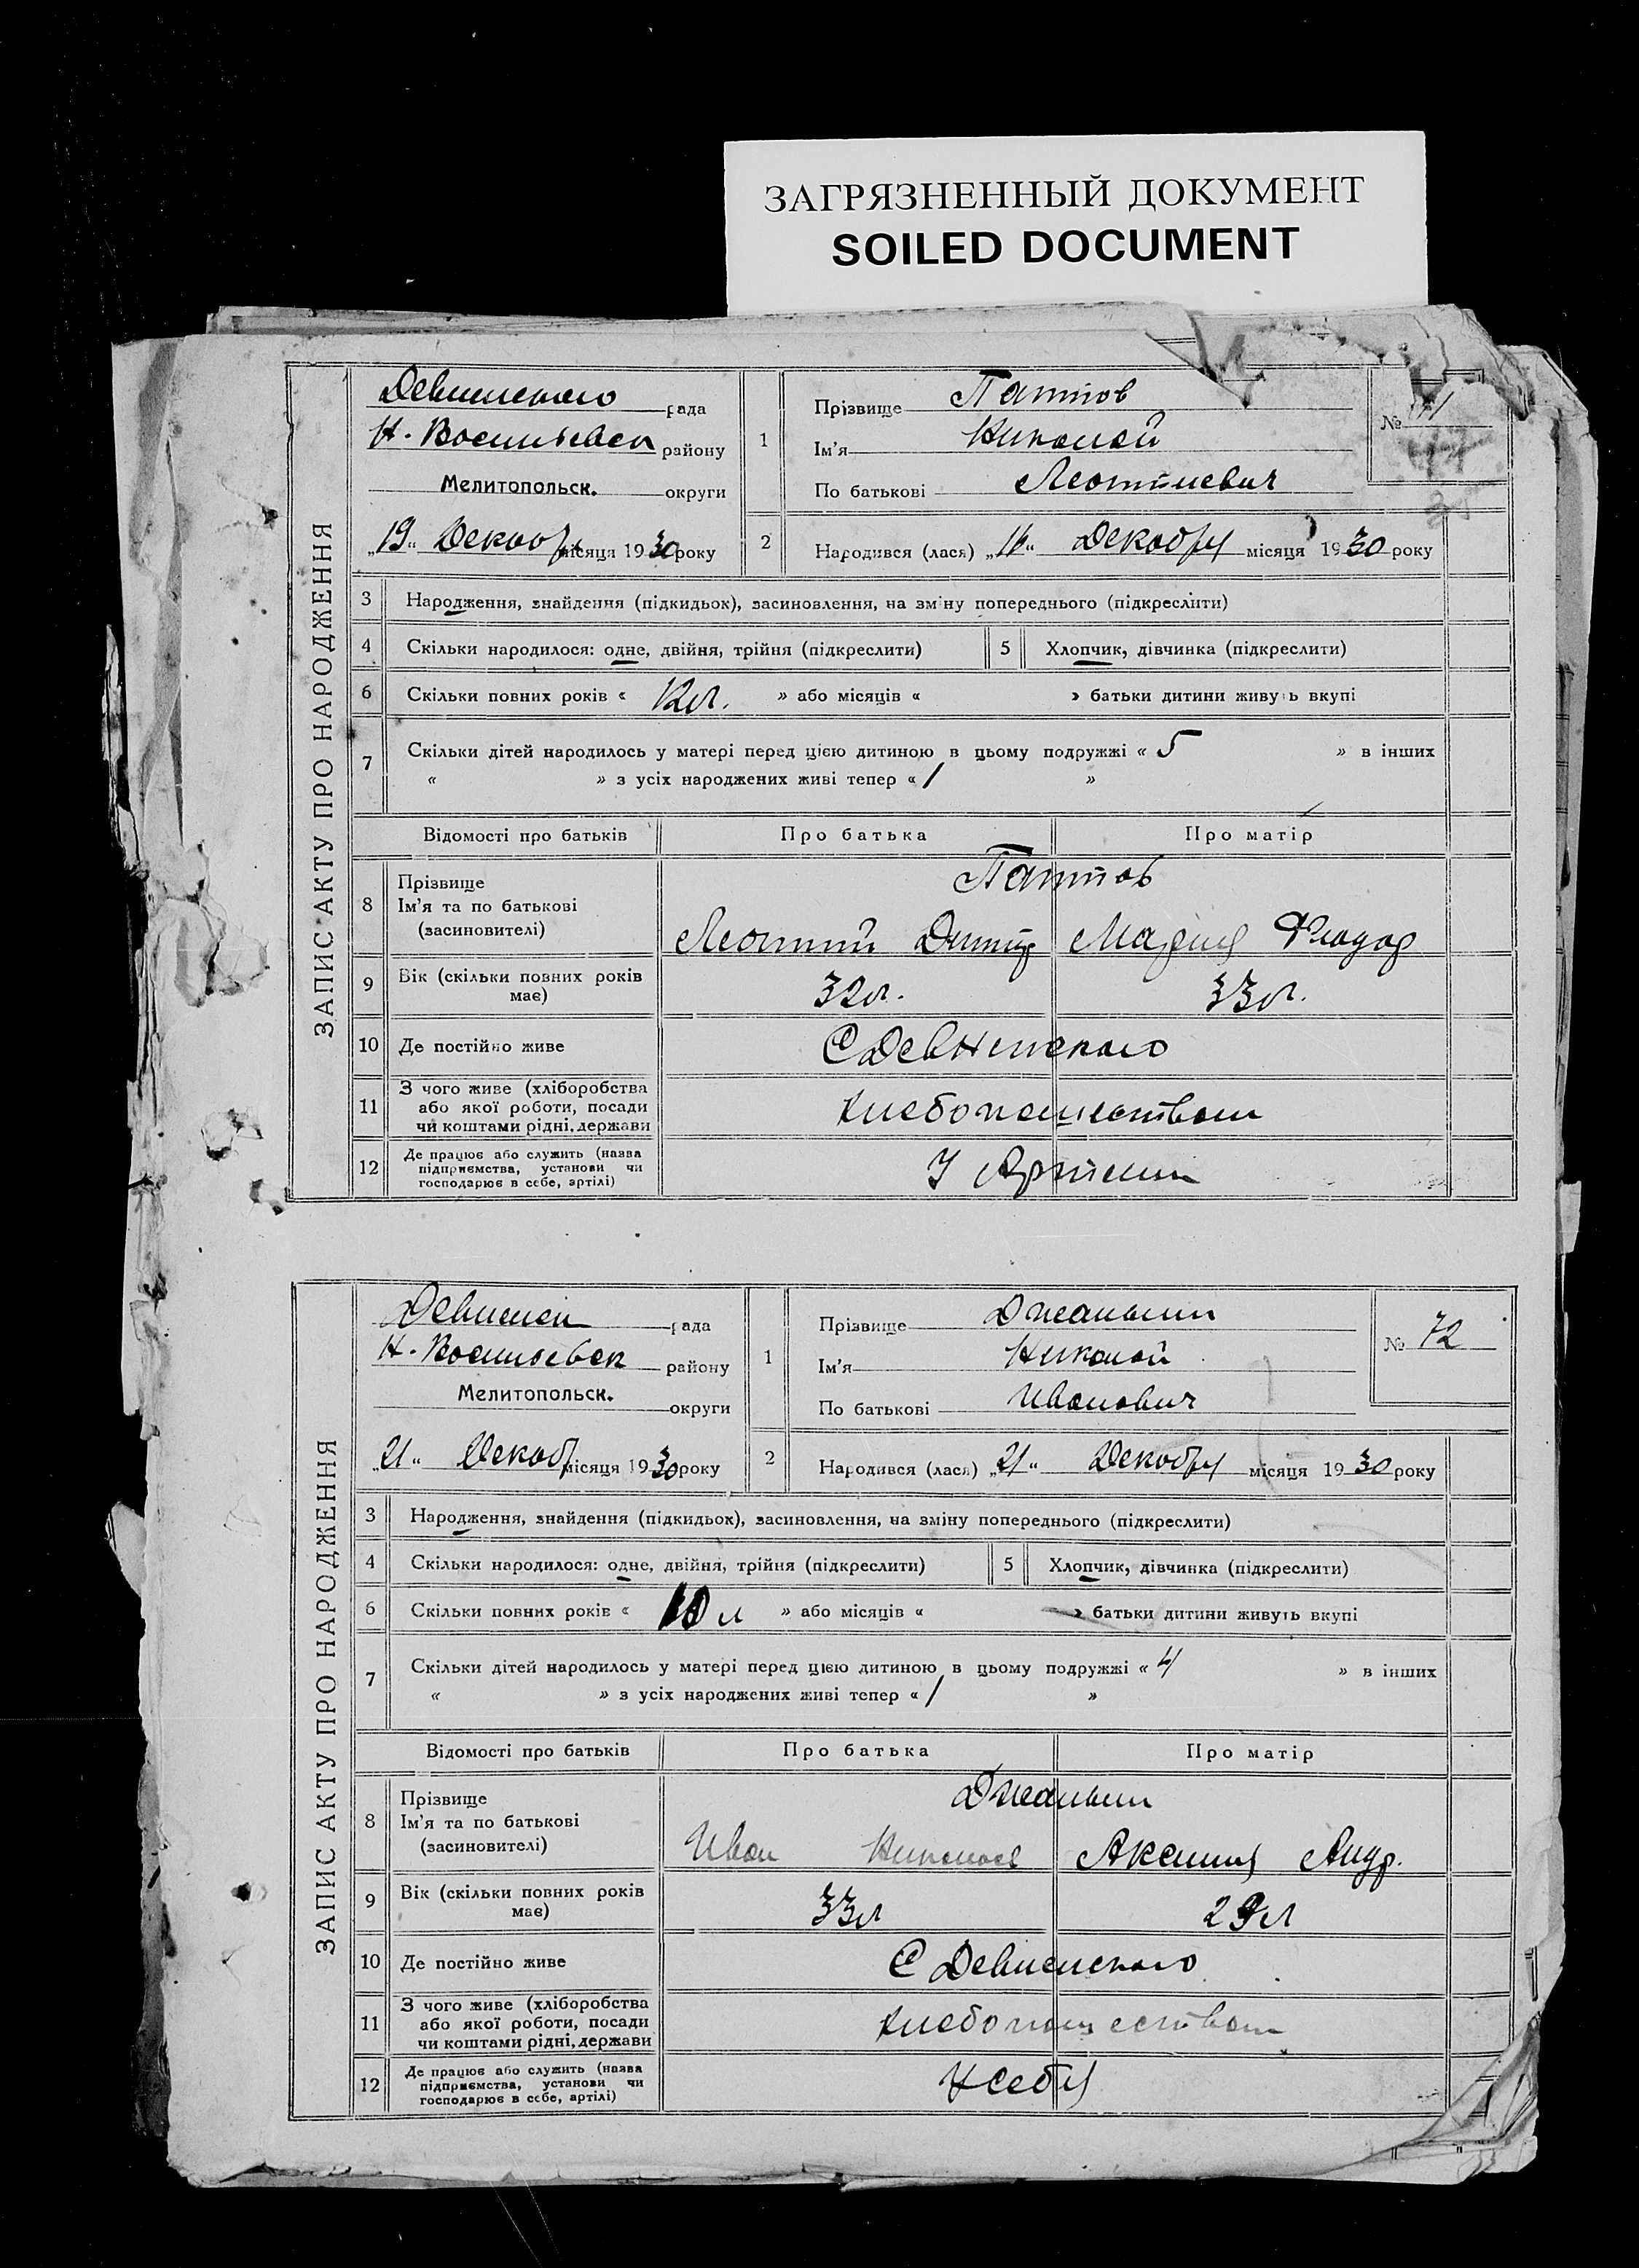 ЗАГРЯЗНЕННЫЙ ДОКУМЕНТ
SOILED DOCUMENT
ЗАПИС АКТУ ПРО НАРОДЖЕННЯ
Девнинского рада
Н. Васильевск району
Мелитопольск. округи
„19“ Декабр місяця 1930 року
1
Прізвище Паттов
Ім'я Николай
По батькові Леонтиевич
№
2
Народився (лася) „16“ Декабря місяця 1930 року
3 Народження, знайдення (підкидьок), засиновлення, на зміну попереднього (підкреслити)
4 Скільки народилося: одне, двійня, трійня (підкреслити) 5 Хлопчик, дівчинка (підкреслити)
6 Скільки повних років « 12л. » або місяців « » батьки дитини живуть вкупі
7 Скільки дітей народилось у матері перед цією дитиною в цьому подружжі « 5 » в інших
« » з усіх народжених живі тепер « 1 »
Відомості про батьків Про батька Про матір
8 Прізвище
Ім'я та по батькові
(засновителі)
Паттов
Леонтий Дмитр Мария Федор
9 Вік (скільки повних років має) 32л. 33л.
10 Де постійно живе С Девнинского
11 З чого живе (хліборобства
або якої роботи, посади
чи коштами рідні, держави
Хлебопашеством
12 Де працює або служить (назва
підприємства, установи чи
господарює в себе, артілі)
У Артели
ЗАПИС АКТУ ПРО НАРОДЖЕННЯ
Девнинск рада
Н. Васильевск району
Мелитопольск. округи
„21“ Декаб місяця 1930 року
1
Прізвище
Ім'я Николай
По батькові Иванович
№ 72
2
Народився (лася) „21“ Декабря місяця 1930 року
3 Народження, знайдення (підкидьок), засиновлення, на зміну попереднього (підкреслити)
4 Скільки народилося: одне, двійня, трійня (підкреслити) 5 Хлопчик, дівчинка (підкреслити)
6 Скільки повних років « 10 л » або місяців « » батьки дитини живуть вкупі
7 Скільки дітей народилось у матері перед цією дитиною в цьому подружжі « 4 » в інших
« » з усіх народжених живі тепер « 1 »
Відомості про батьків Про батька Про матір
8 Прізвище
Ім'я та по батькові
(засиновителі)
Иван Николаев Аксиния Андр.
9 Вік (скільки повних років має) 33л 29л
10 Де постійно живе С Девнинского
11 З чого живе (хліборобства
або якої роботи, посади
чи коштами рідні, держави
Хлебопашеством
12 Де працює або служить (назва
підприємства, установи чи
господарює в себе, артілі)
У себя